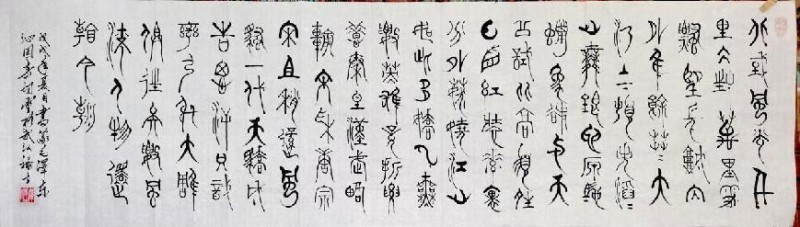 北國風光千
里冰封萬里雪
飄望長城內
外惟餘莽莽大
河上下頓失滔滔
山舞銀蛇原馳
蠟象欲與天
公試比高須晴
日看紅裝素裹
分外妖嬈江山
如此多嬌引無
數英雄競折腰
惜秦皇漢武略
輸文采唐宗
宋祖稍遜風
騷一代天驕成
吉思汗只識
彎弓射大雕
俱往矣數風
流人物還
看今朝
戊戌年夏月書澤東
沁園春詞雪於武漢